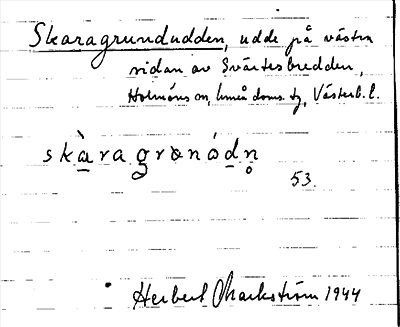 Skaragrundudden, udde på västra
sidan av Svärtesbredden,
Holmöns sn, Umeå doms. tg, Västerb. l.
skàragrɔnódn̥
53.
Herbert Markström 1944